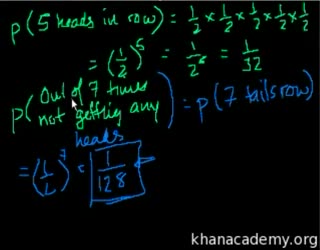 P(5 heads in row) = 1/2 × 1/2 × 1/2 × 1/2 × 1/2
= (1/2)^5 = 1/2^5 = 1/32
P(Out of 7 times not getting any heads) = P(7 tails row)
= (1/2)^7 = 1/128
khanacademy.org